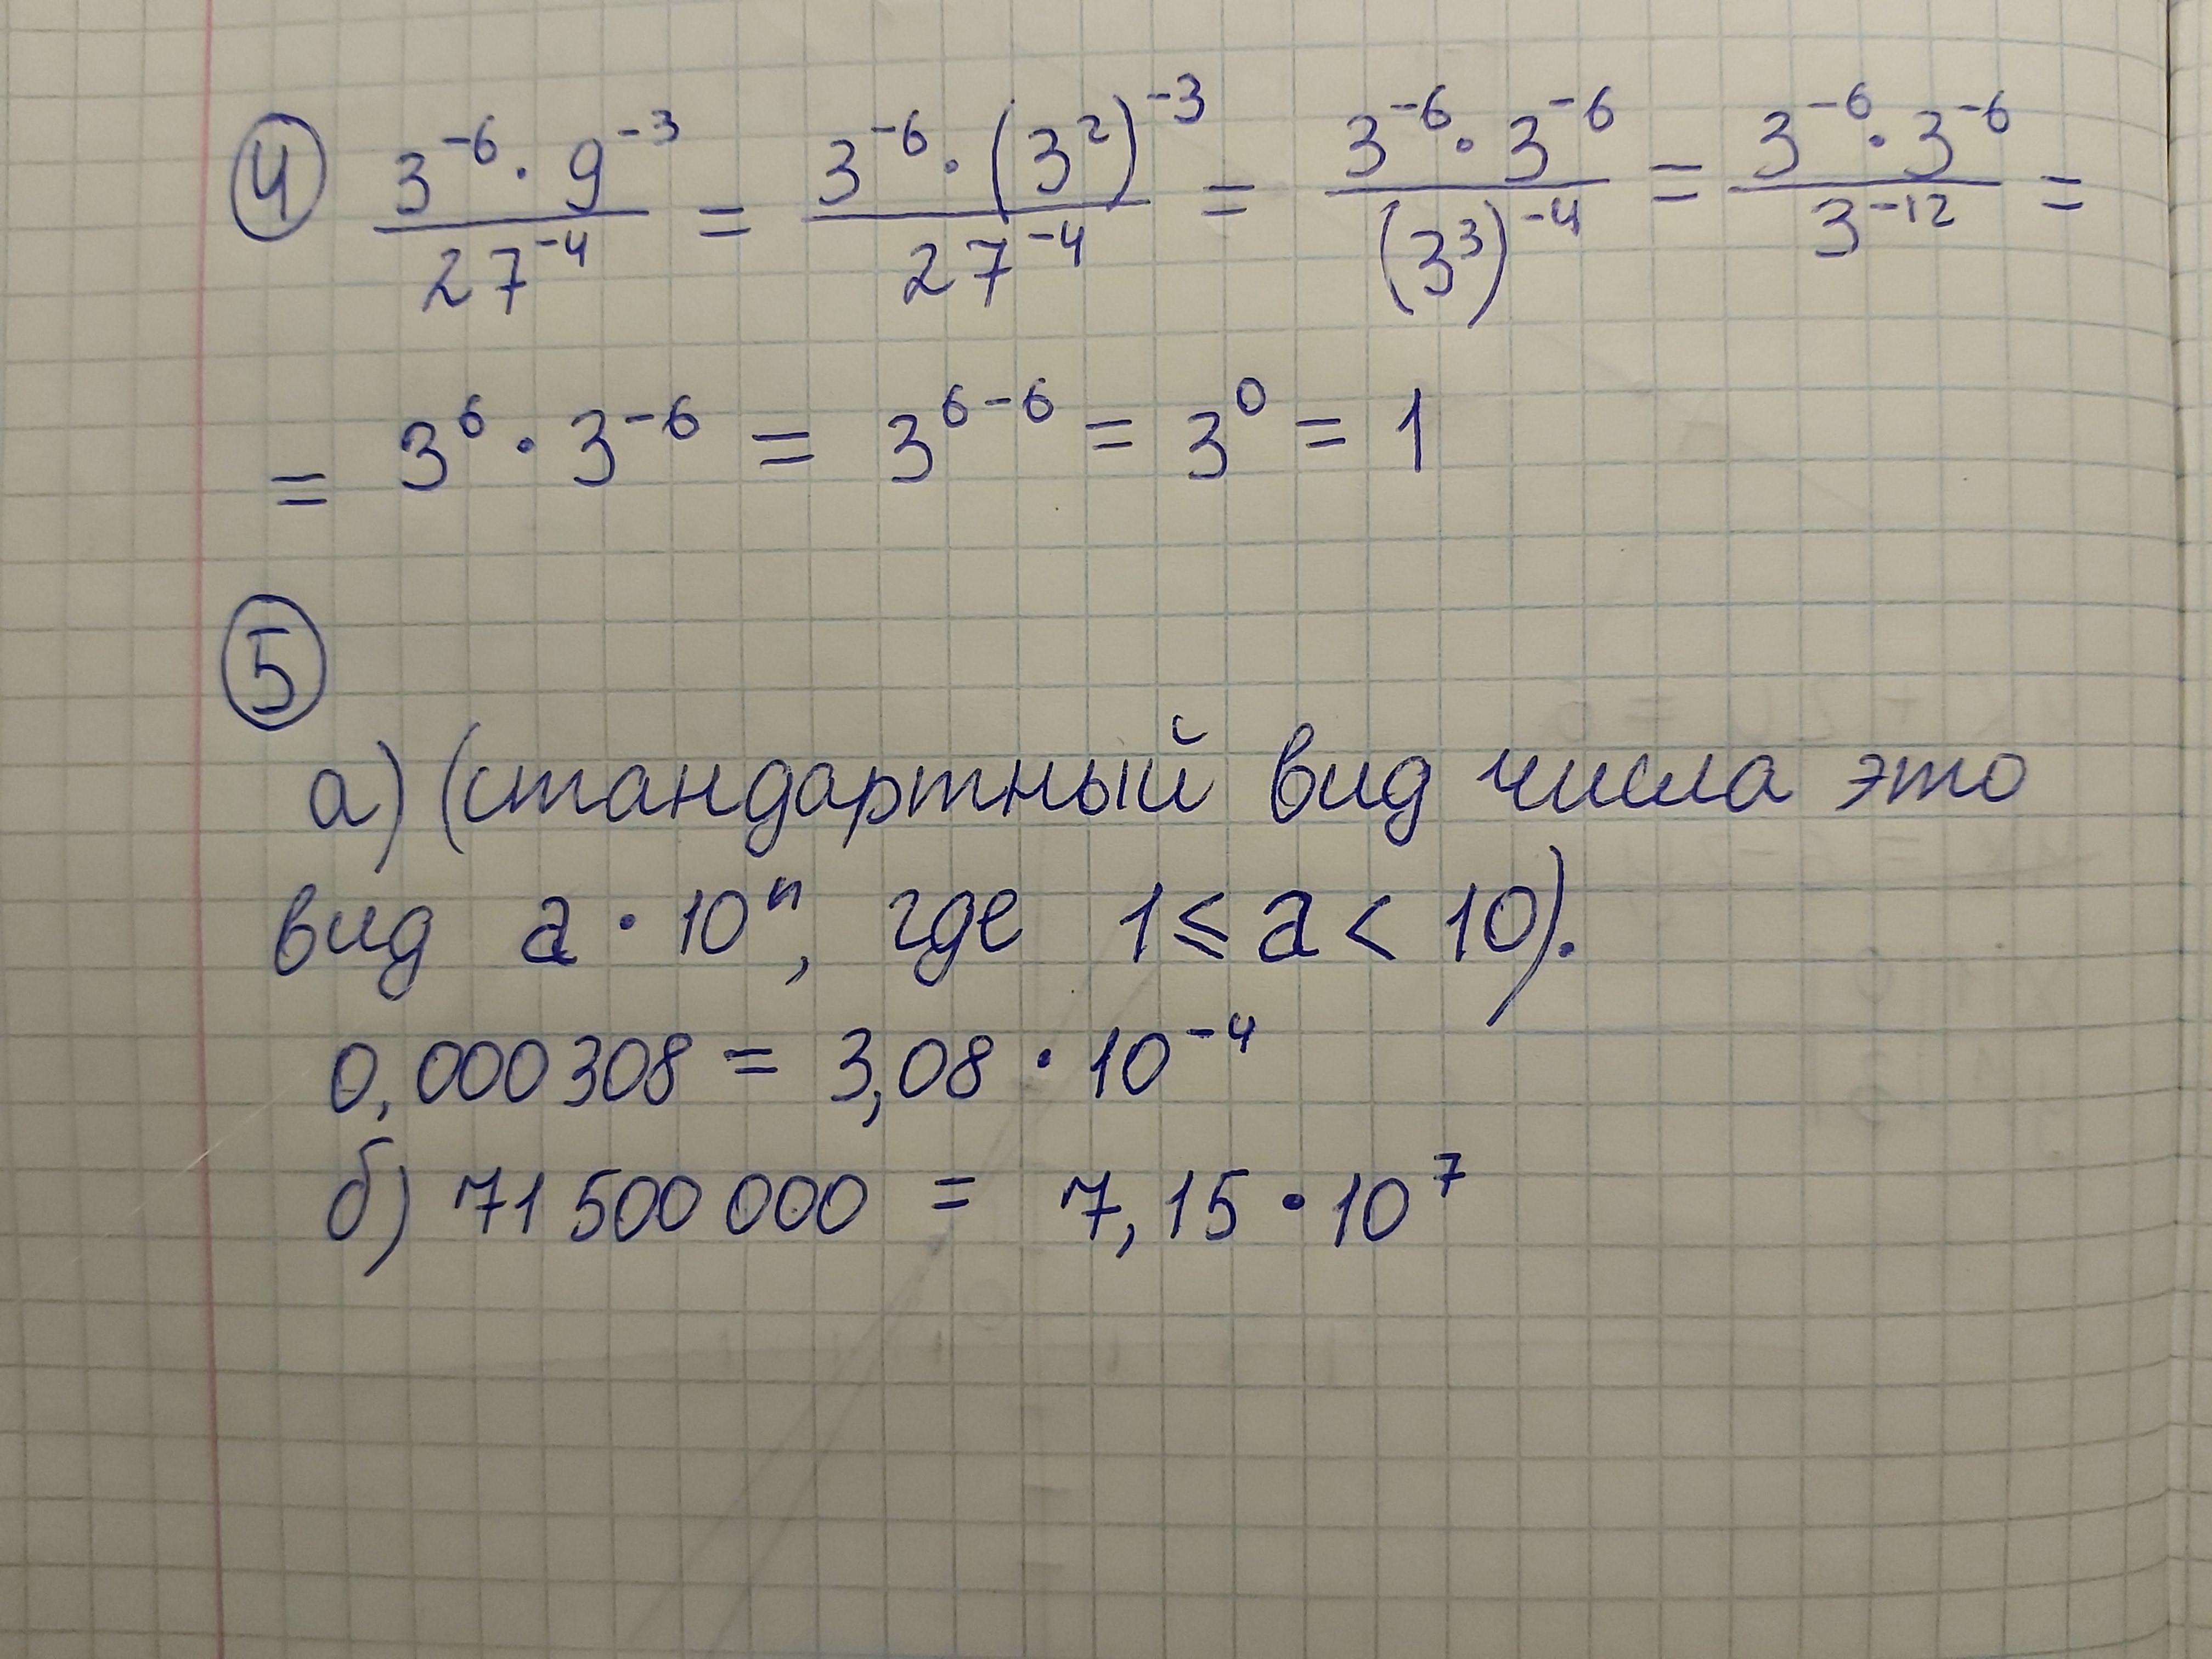 ④ (3⁻⁶ · 9⁻³)/(27⁻⁴) = (3⁻⁶ · (3²)⁻³)/(27⁻⁴) = (3⁻⁶ · 3⁻⁶)/((3³)⁻⁴) = (3⁻⁶ · 3⁻⁶)/(3⁻¹²) =
= 3⁶ · 3⁻⁶ = 3⁶⁻⁶ = 3⁰ = 1
⑤
а) (стандартный вид числа это
вид a · 10ⁿ, где 1 ≤ a < 10).
0,000308 = 3,08 · 10⁻⁴
б) 71 500 000 = 7,15 · 10⁷